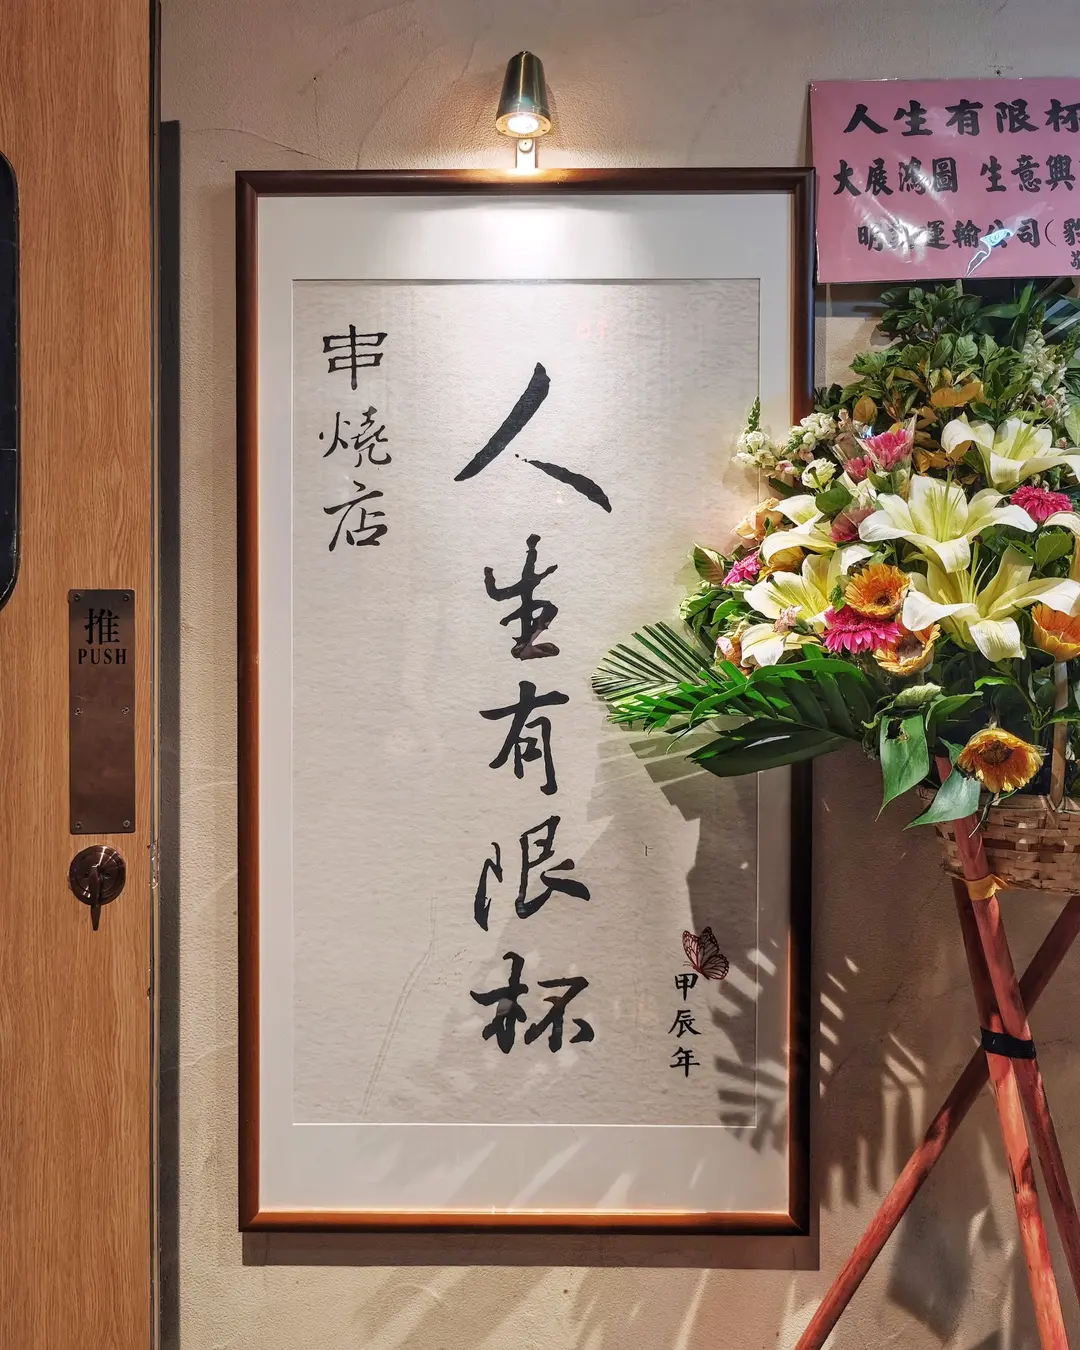 推
PUSH
人生有限杯
甲辰年
串燒店
人生有限杯
大展鴻圖 生意興
明 運輸公司(
敬